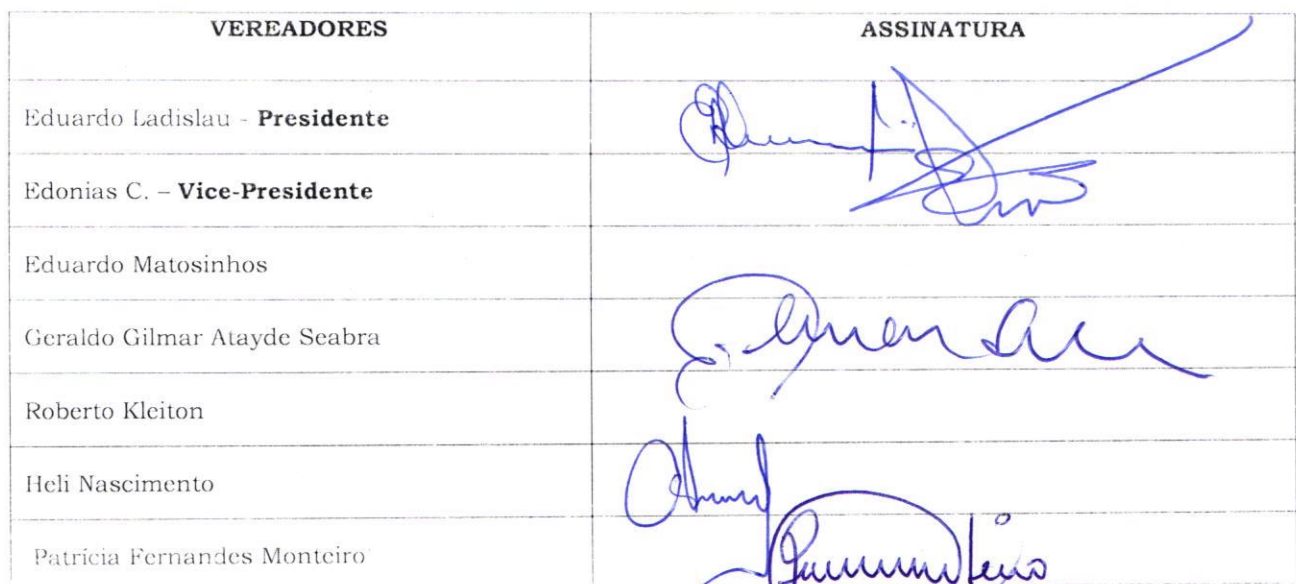 VEREADORES ASSINATURA
Eduardo Ladislau - Presidente
Edonias C. – Vice-Presidente
Eduardo Matosinhos
Geraldo Gilmar Atayde Seabra
Roberto Kleiton
Heli Nascimento
Patrícia Fernandes Monteiro